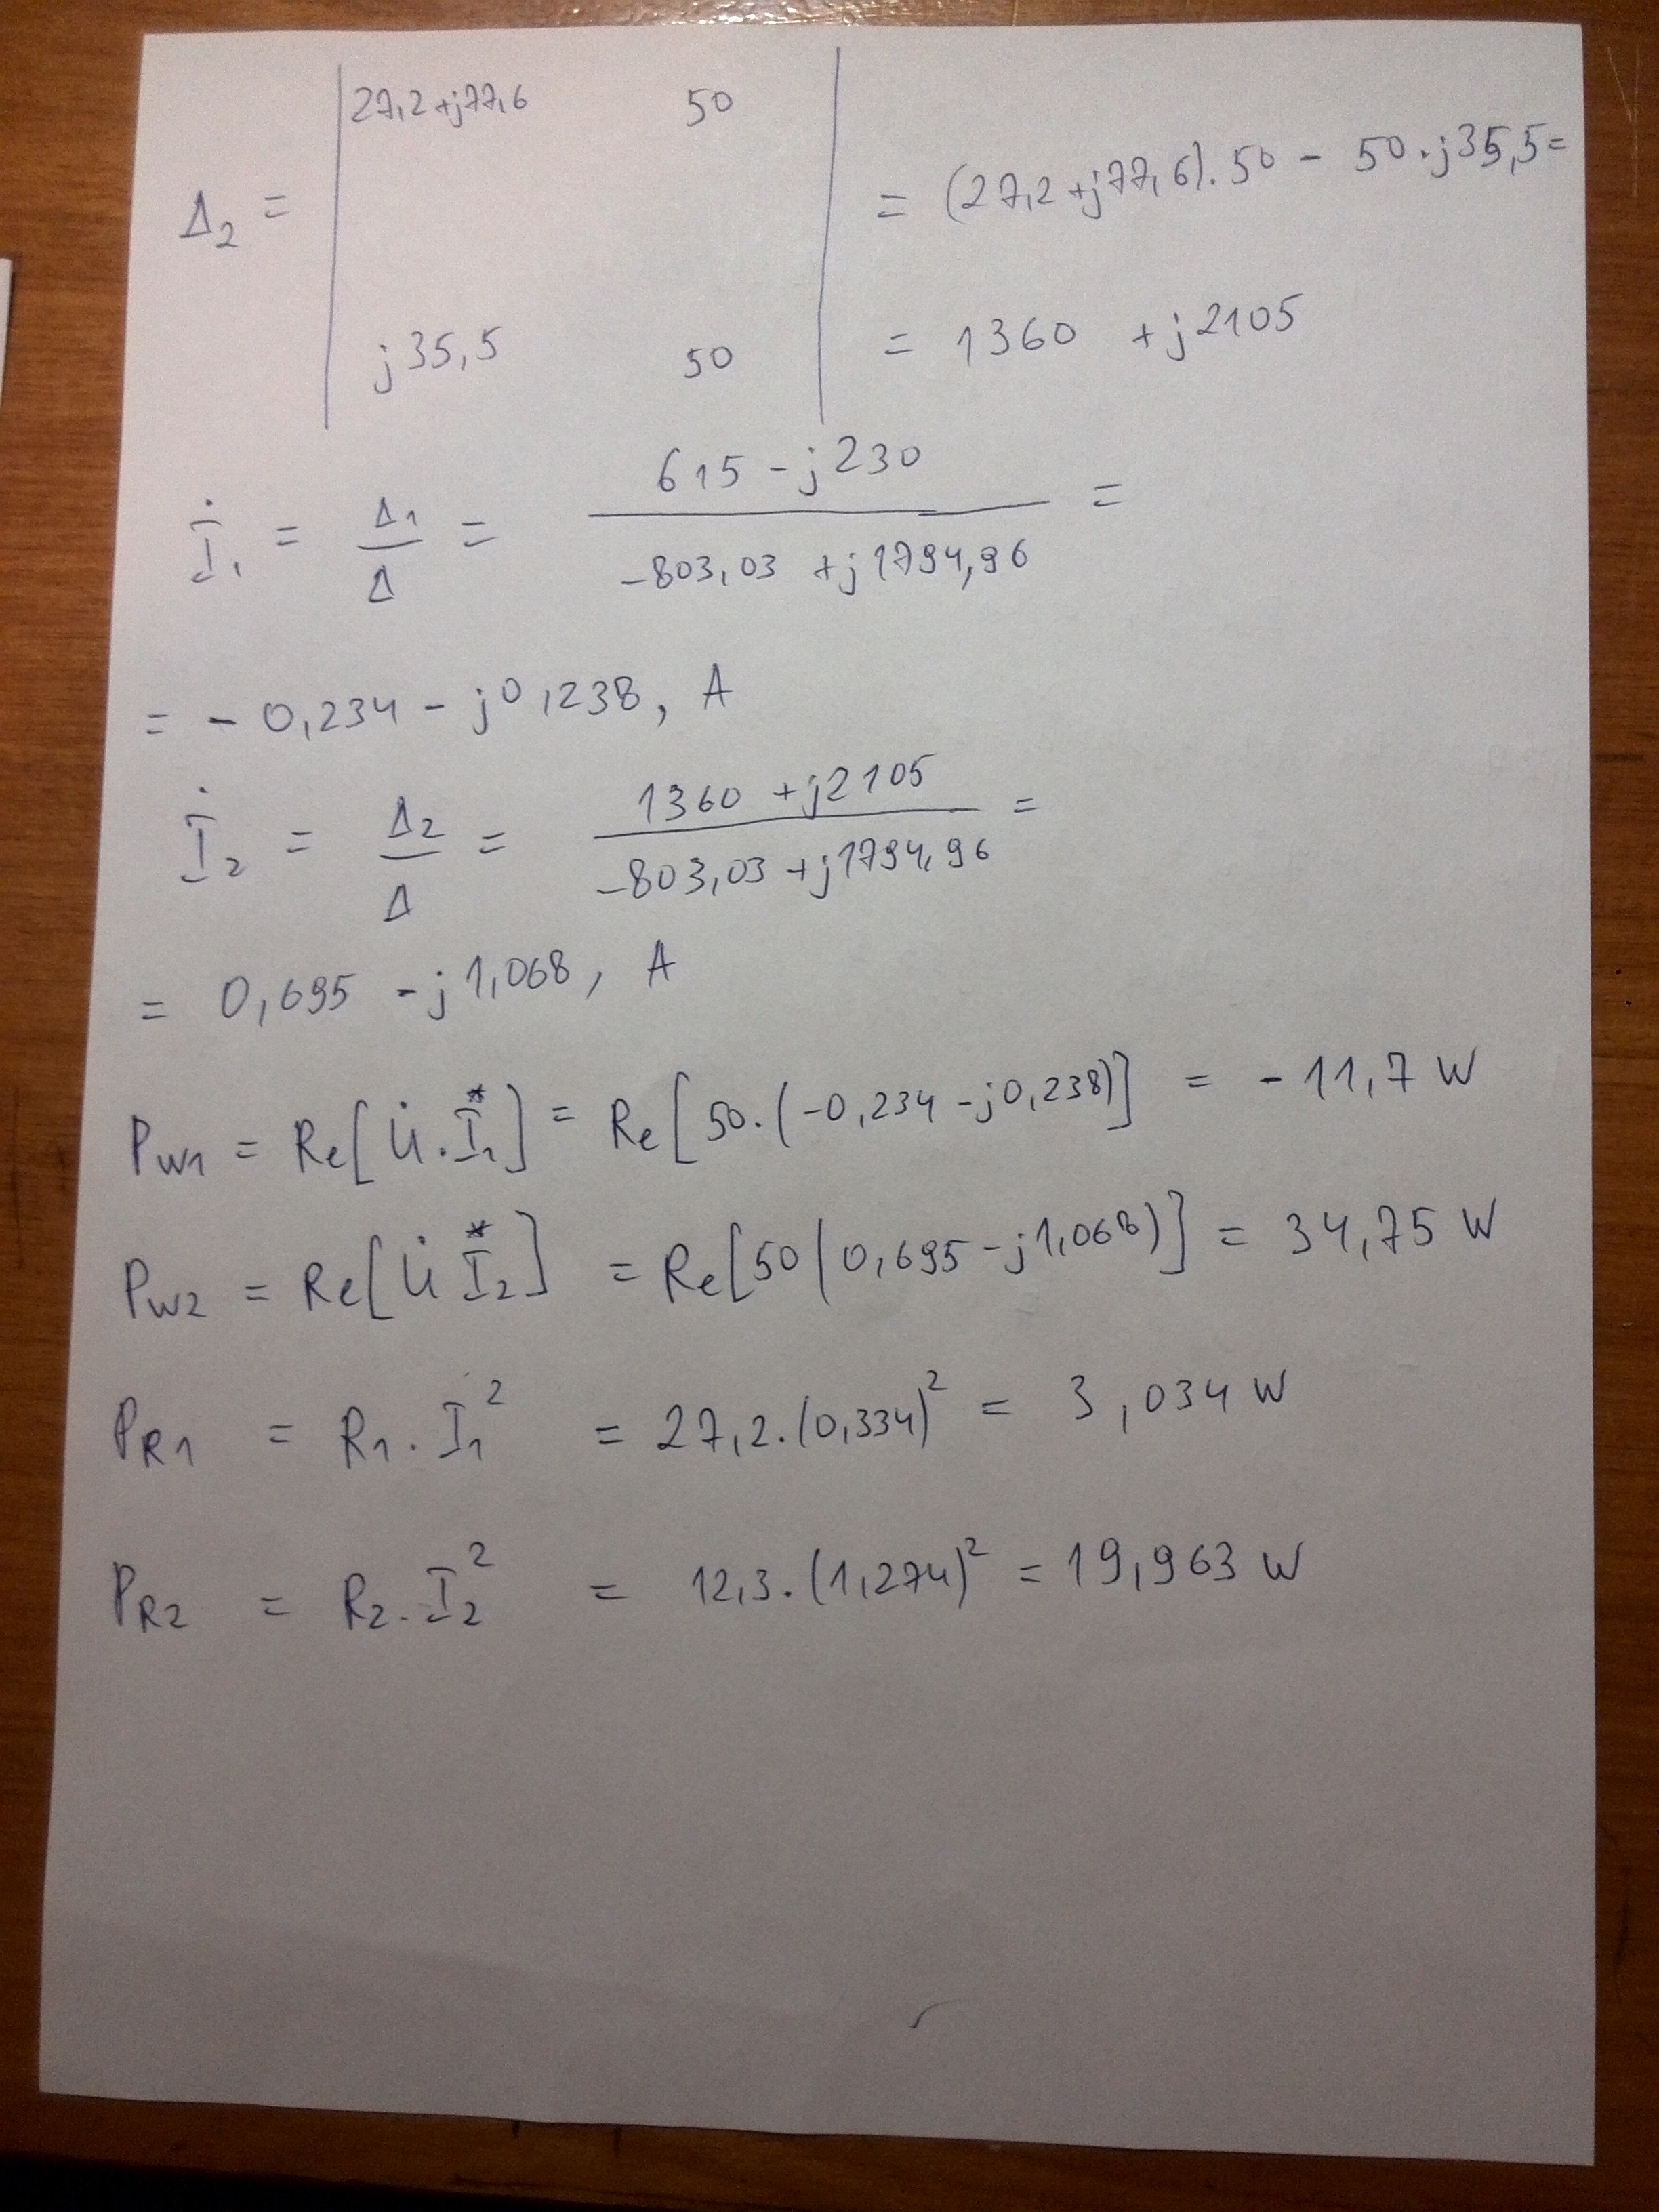 Δ₂ = | 27,2+j77,6 50 |
| j35,5 50 |
= (27,2+j77,6).50 - 50.j35,5=
= 1360 +j2105
İ₁ = Δ₁/Δ = (615 - j230)/(-803,03 +j1794,96) =
= - 0,234 - j0,238, A
İ₂ = Δ₂/Δ = (1360 +j2105)/(-803,03 +j1794,96) =
= 0,695 - j1,068, A
P_W1 = Re[U̇.I₁*] = Re[50.(-0,234 -j0,238)] = -11,7 W
P_W2 = Re[U̇ I₂*] = Re[50(0,695 -j1,068)] = 34,75 W
P_R1 = R₁. I₁² = 27,2.(0,334)² = 3,034 W
P_R2 = R₂. I₂² = 12,3.(1,274)² = 19,963 W